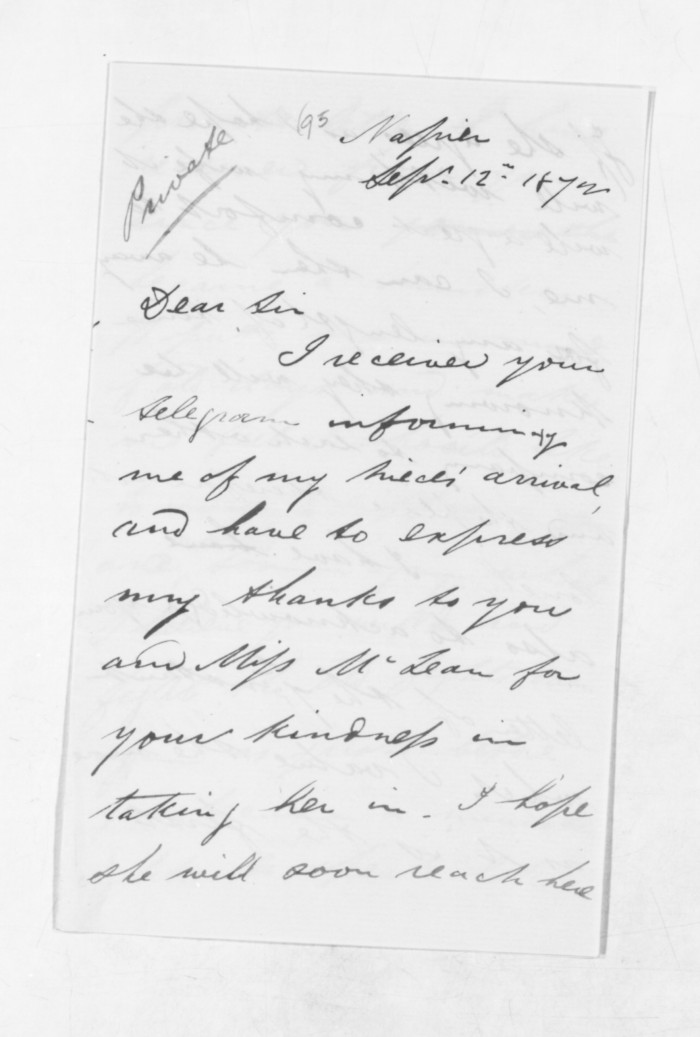 Private
Napier
Sepr. 12th 1872
Dear Sir
I received your
telegram informing
me of my niece's arrival,
and have to express
my thanks to you
and Miss McLean for
your kindness in
taking her in. I hope
she will soon reach here